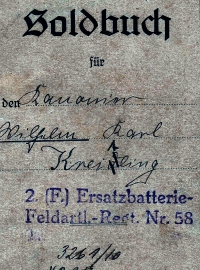 Soldbuch
für
den Kanonier
Wilhelm Karl
Kreißling
2. (F.) Ersatzbatterie-
Feldartl.-Regt. Nr. 58
3261/10